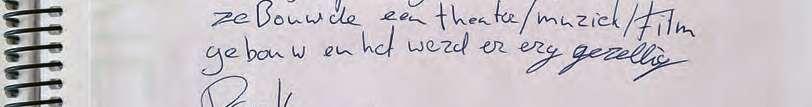 ze Bouwde een theater/muziek/Film
gebouw en het werd er erg gezellig